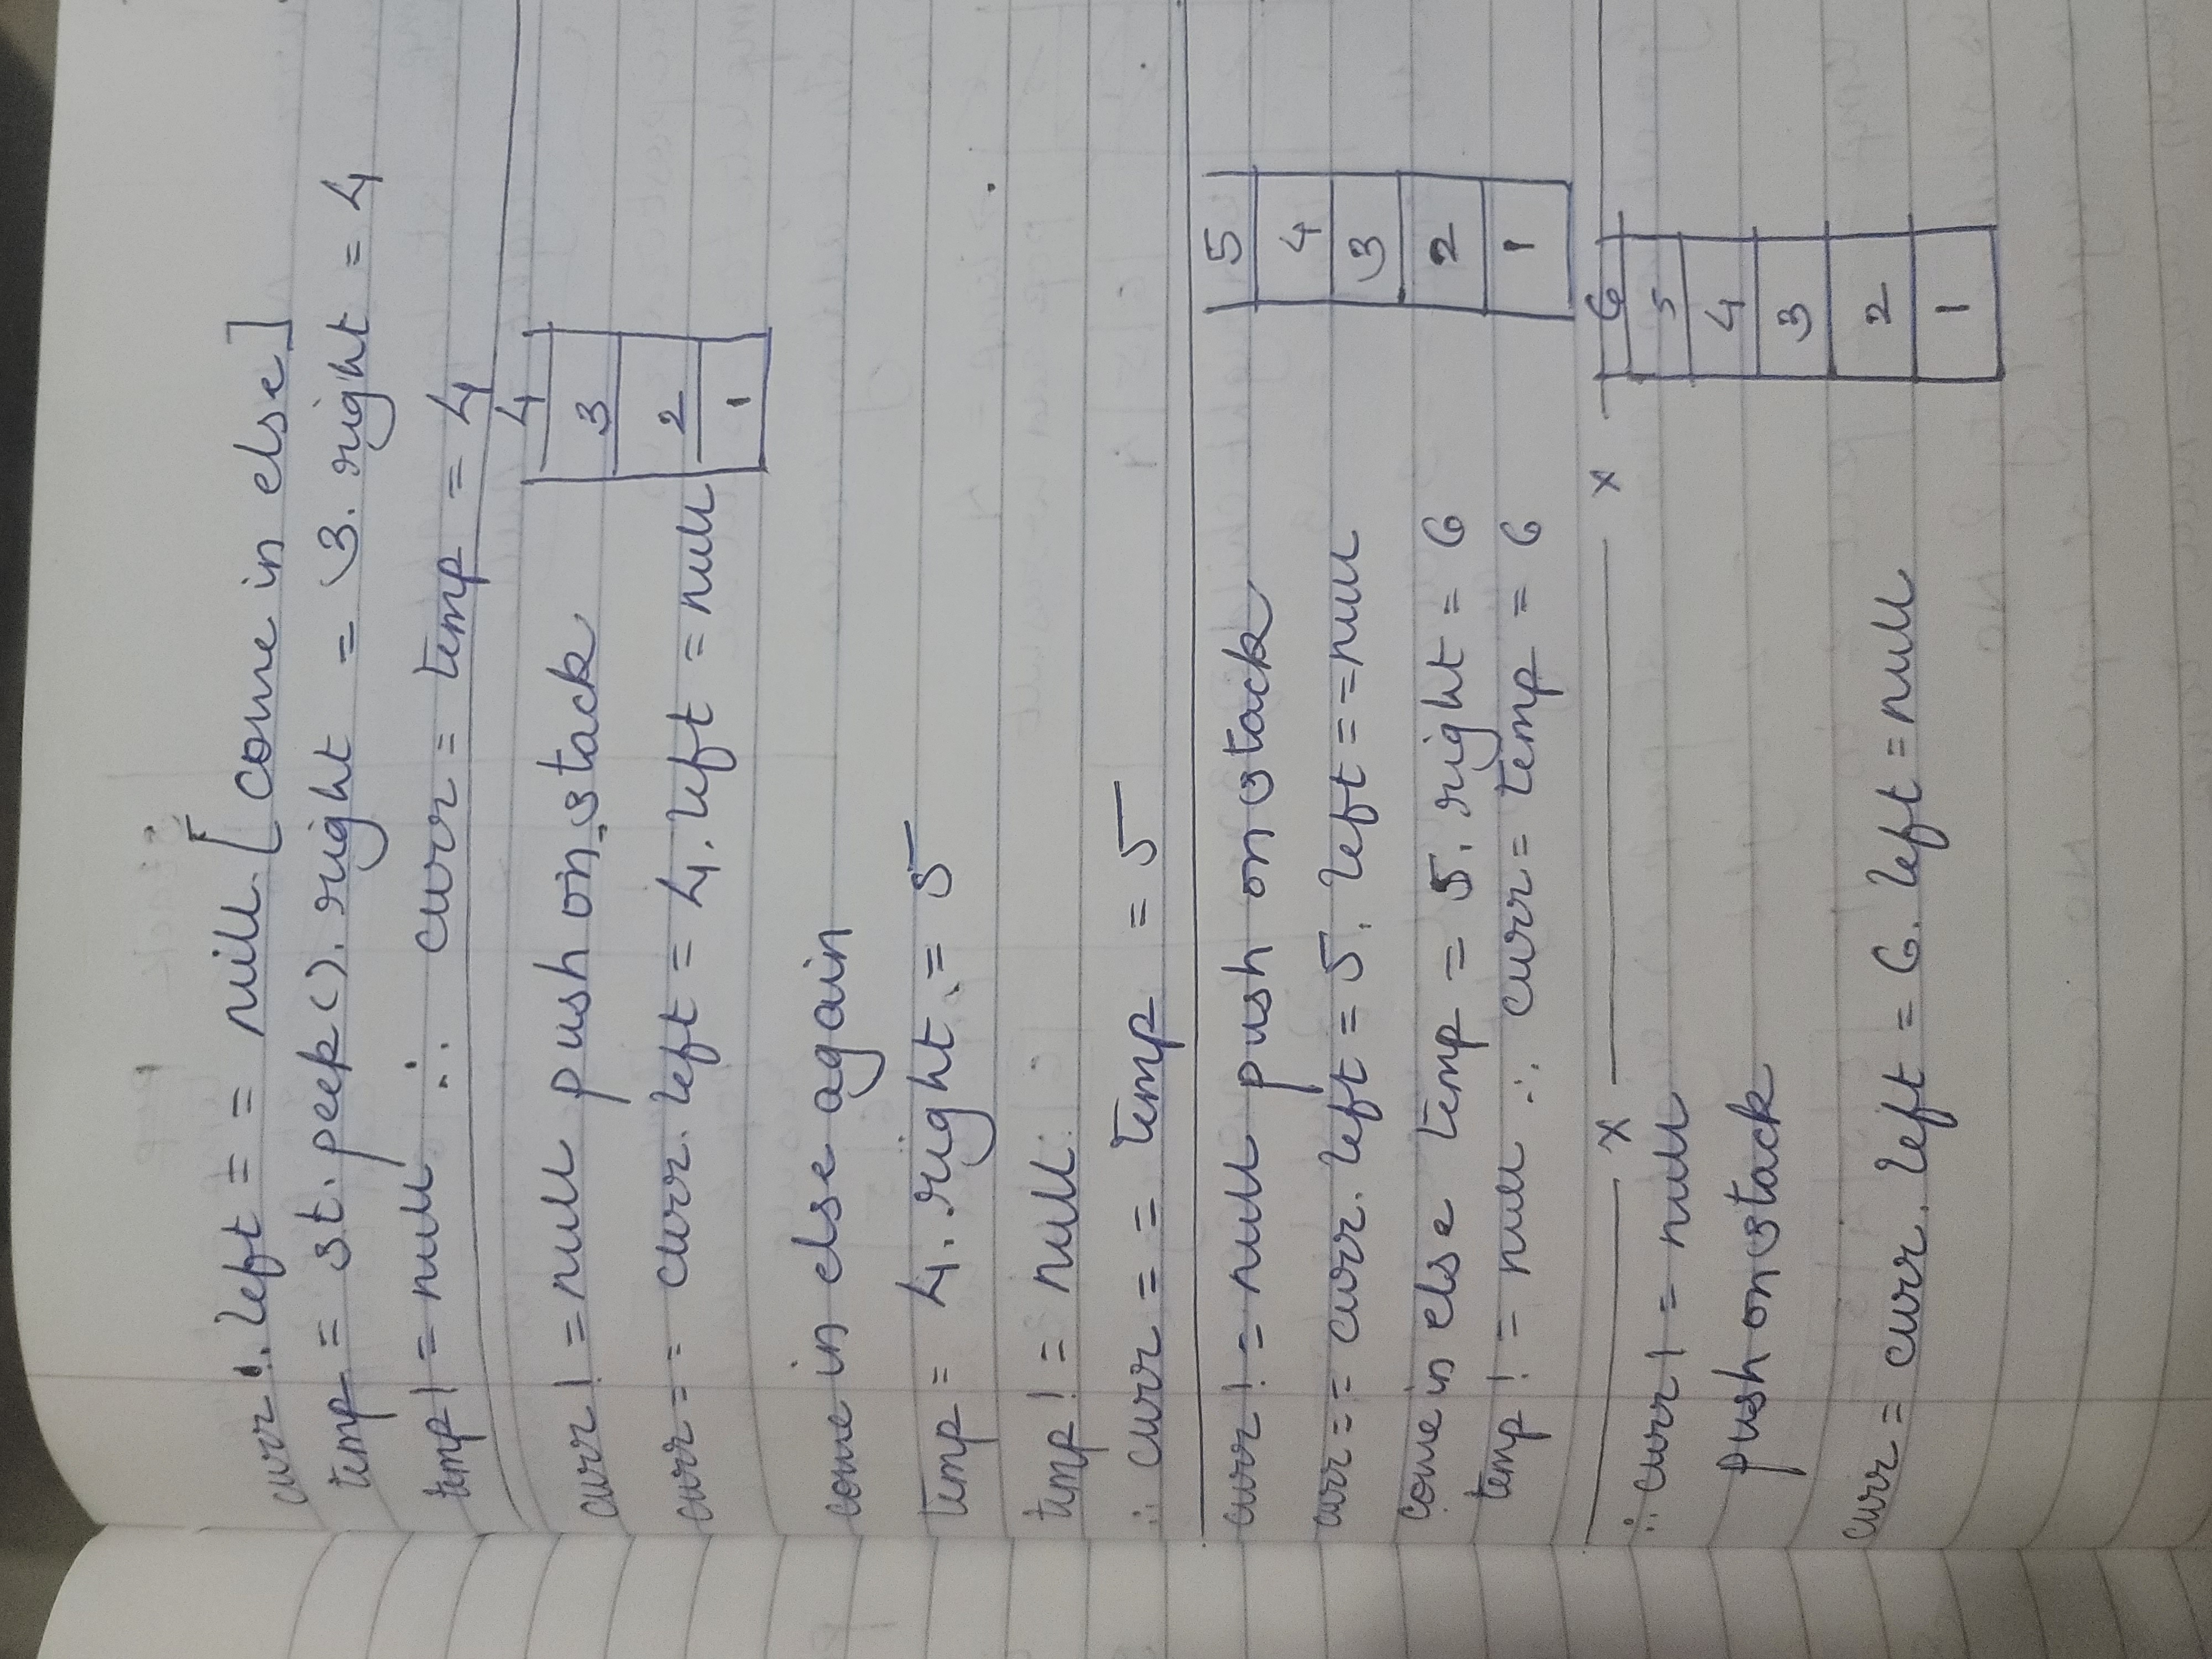 curr!.left == null. [come in else]
temp = st.peek().right = 3.right = 4
temp != null ∴ curr = temp = 4
curr != null push on stack
curr == curr.left = 4.left = null
4
3
2
1
come in else again
temp = 4.right = 5
temp != null
∴ curr == temp = 5
curr != null push on stack
curr == curr.left = 5.left == null
come in else temp = 5.right = 6
temp != null ∴ curr = temp = 6
5
4
3
2
1
x x
∴ curr != null
push on stack
curr = curr.left = 6.left = null
6
5
4
3
2
1